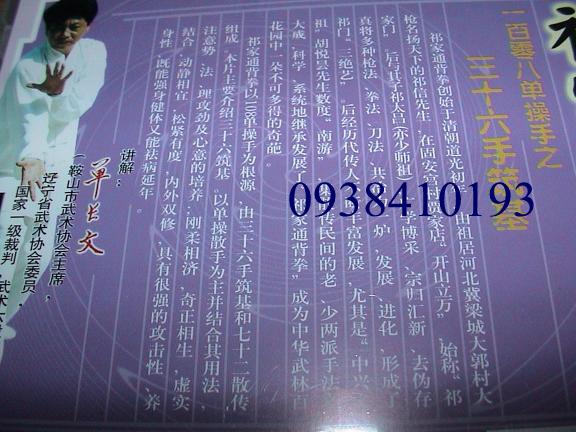 一百零八单操手之
三十六手筑基
祁家通背拳创始于清朝道光初 由祖居河北冀梁城大郭村大
枪名扬天下的祁信先生，在固安 家店"开山立方"，始称"祁
家门"。后与其子祁太昌(亦少师祖) 学博采，宗归汇新，去伪存
真将多种枪法、拳法、刀法、共 炉，发展、进化、形成了
祁门"三绝艺"。后经历代传人 丰富发展，尤其是"中兴
祖"胡悦昙先生数度"南游"， 传民间的老、少两派手法
大成，科学、系统地继承发展了"祁家通背拳"，成为中华武林百
花园中一朵不可多得的奇葩。
祁家通背拳以108单操手为根源，由三十六手筑基和七十二散传
组成，本片主要介绍三十六筑基。以单操散手为主并结合其用法，
注意势、法、理攻劲及心意的培养；刚柔相济、奇正相生，虚实
结合、动静相宜、松紧有度，内外双修，具有很强的攻击性、养
身性。既能强身健体又能祛病延年。
讲解：单长文
（鞍山市武术协会主席，
辽宁省武术协会委员，
国家一级裁判，武术
0938410193